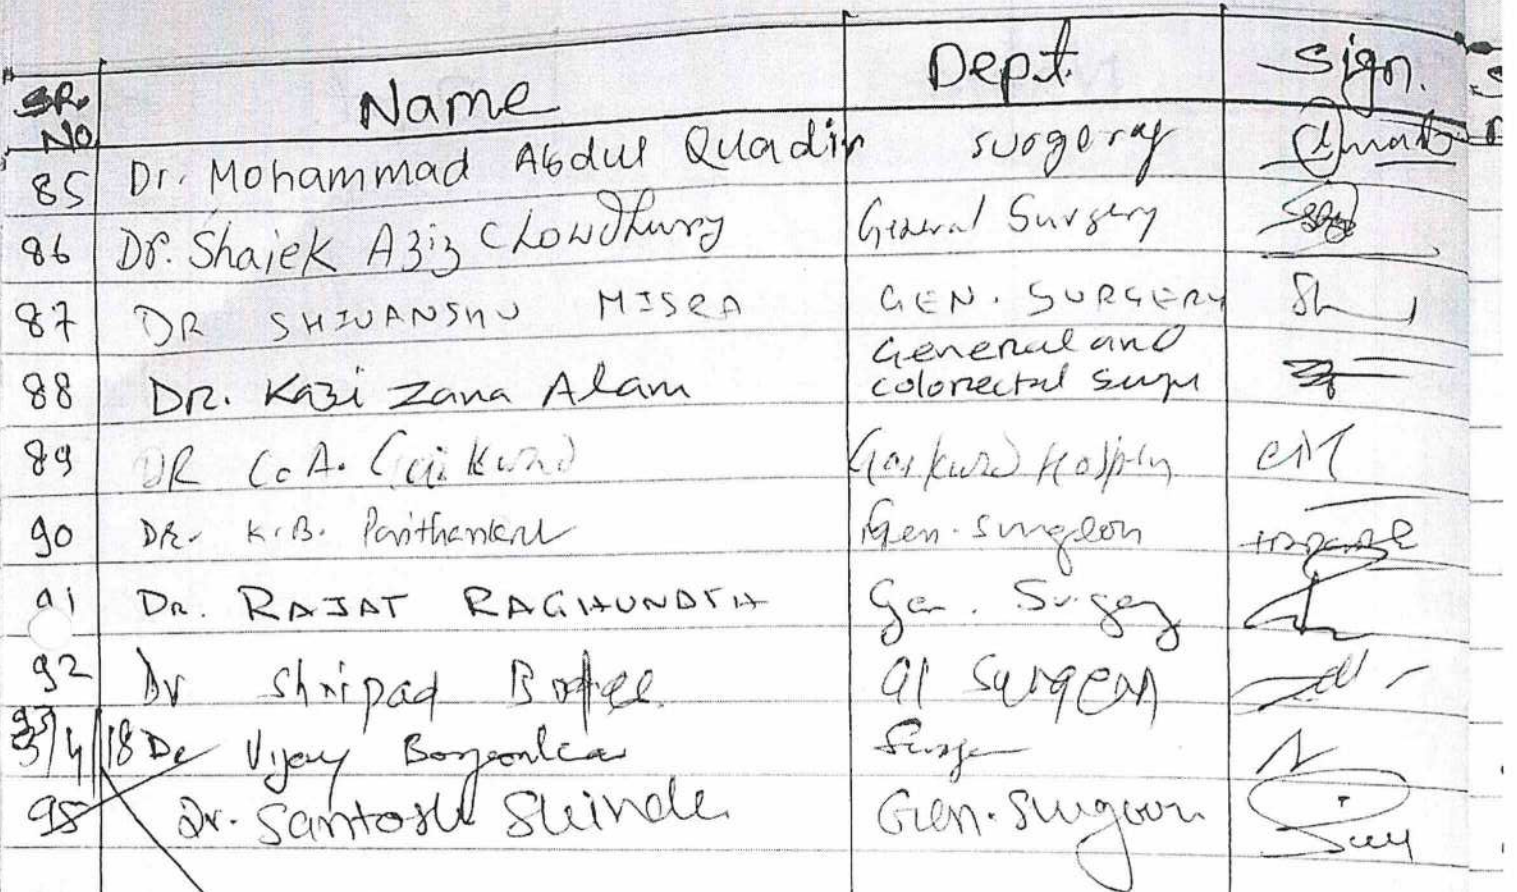 SR. No. Name Dept. Sign.
85 Dr. Mohammad Abdul Quadir surgery
86 Dr. Shaiek Aziz Chowdhury General Surgery
87 DR SHIVANSHU MISRA GEN. SURGERY Sh
General and
88 DR. Kazi Zana Alam colorectal surgn
89 DR C.A. Gaikwad Gaikwad Hospital
90 DR. K.B. Gen. Surgeon
91 DR. RAJAT RAGHUNATH Gen. Surgery
92 Dr Shripad GI Surgeon
93/4/18 Dr Vijay Borgaonkar Surge
95 Dr. Santosh Shinde Gen. Surgeon